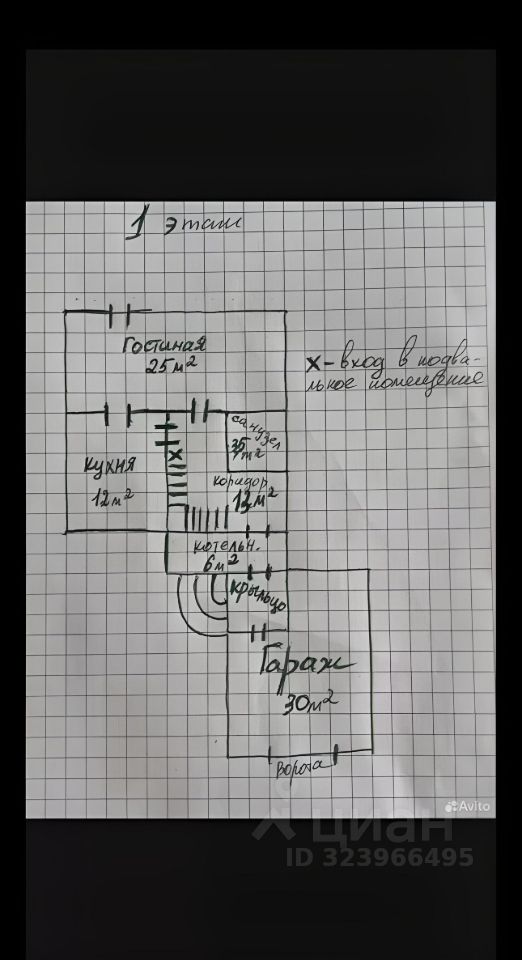 1 этаж
Гостиная
25 м²
х - вход в подва-
льное помещение
санузел
м²
кухня
12 м²
коридор
13 м²
котельн.
6 м²
крыльцо
Гараж
30 м²
ворота
Avito
циан
ID 323966495